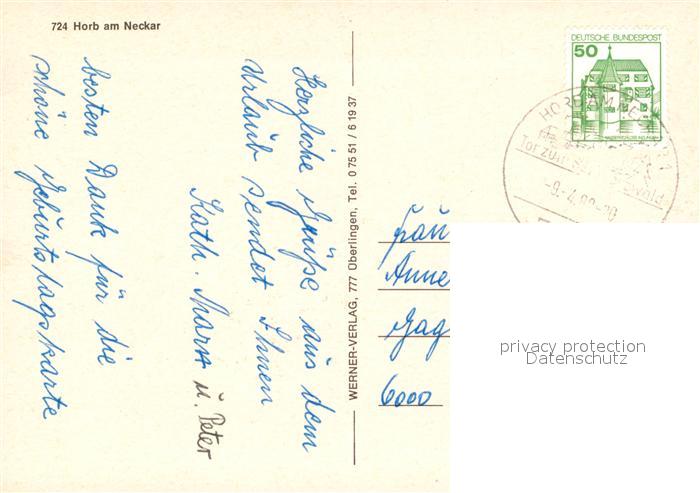 724 Horb am Neckar
Herzliche Grüße aus dem
Urlaub sendet Ihnen
Kath. Marx u. Peter
besten Dank für die
schöne Geburtstagskarte
WERNER-VERLAG, 777 Überlingen, Tel. 0 75 51 / 6 19 37
DEUTSCHE BUNDESPOST
50
HORB AM NECKAR
Tor zum Schwarzwald
Frau
Anne
Gag
6000
privacy protection
Datenschutz